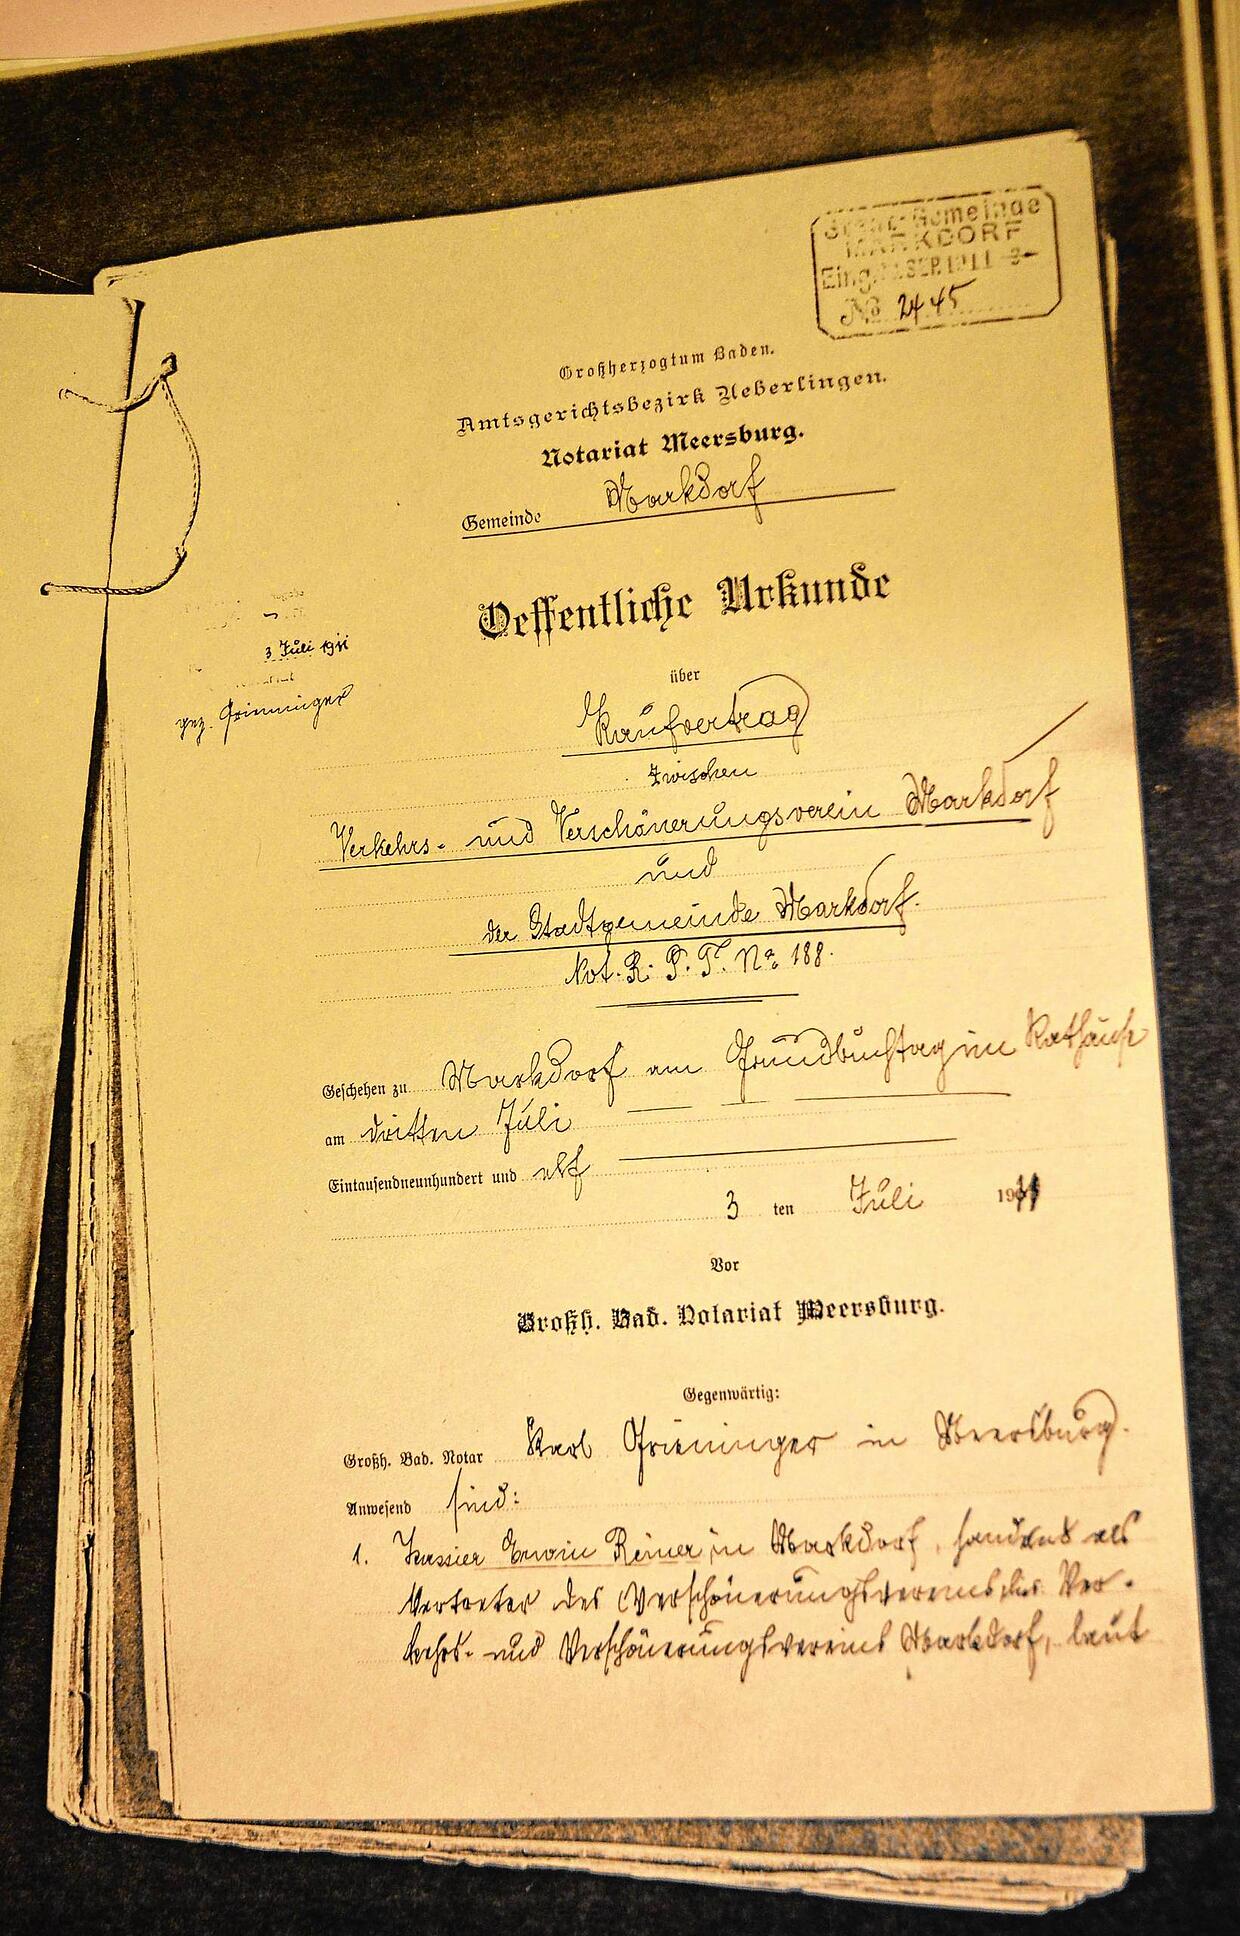 Gemeinde
MARKDORF
Eing. SEP. 1911
No 2445
Großherzogtum Baden.
Amtsgerichtsbezirk Ueberlingen.
Notariat Meersburg.
Gemeinde Markdorf
Oeffentliche Urkunde
3 Juli 1911
gez. Grieninger
über
Kaufvertrag
zwischen
Verkehrs- und Verschönerungsverein Markdorf
und
der Stadtgemeinde Markdorf.
Not. R. P. T. No 188.
Geschehen zu Markdorf am Grundbuchtag im Rathause
am dritten Juli
Eintausendneunhundert und elf
3 ten Juli 1911
Vor
Großh. Bad. Notariat Meersburg.
Gegenwärtig:
Großh. Bad. Notar Karl Grieninger in Meersburg.
Anwesend sind:
1. Kassier Erwin Reiner in Markdorf, handelnd als
Vertreter des Verschönerungsvereins des Ver-
kehrs- und Verschönerungsvereins Markdorf, laut